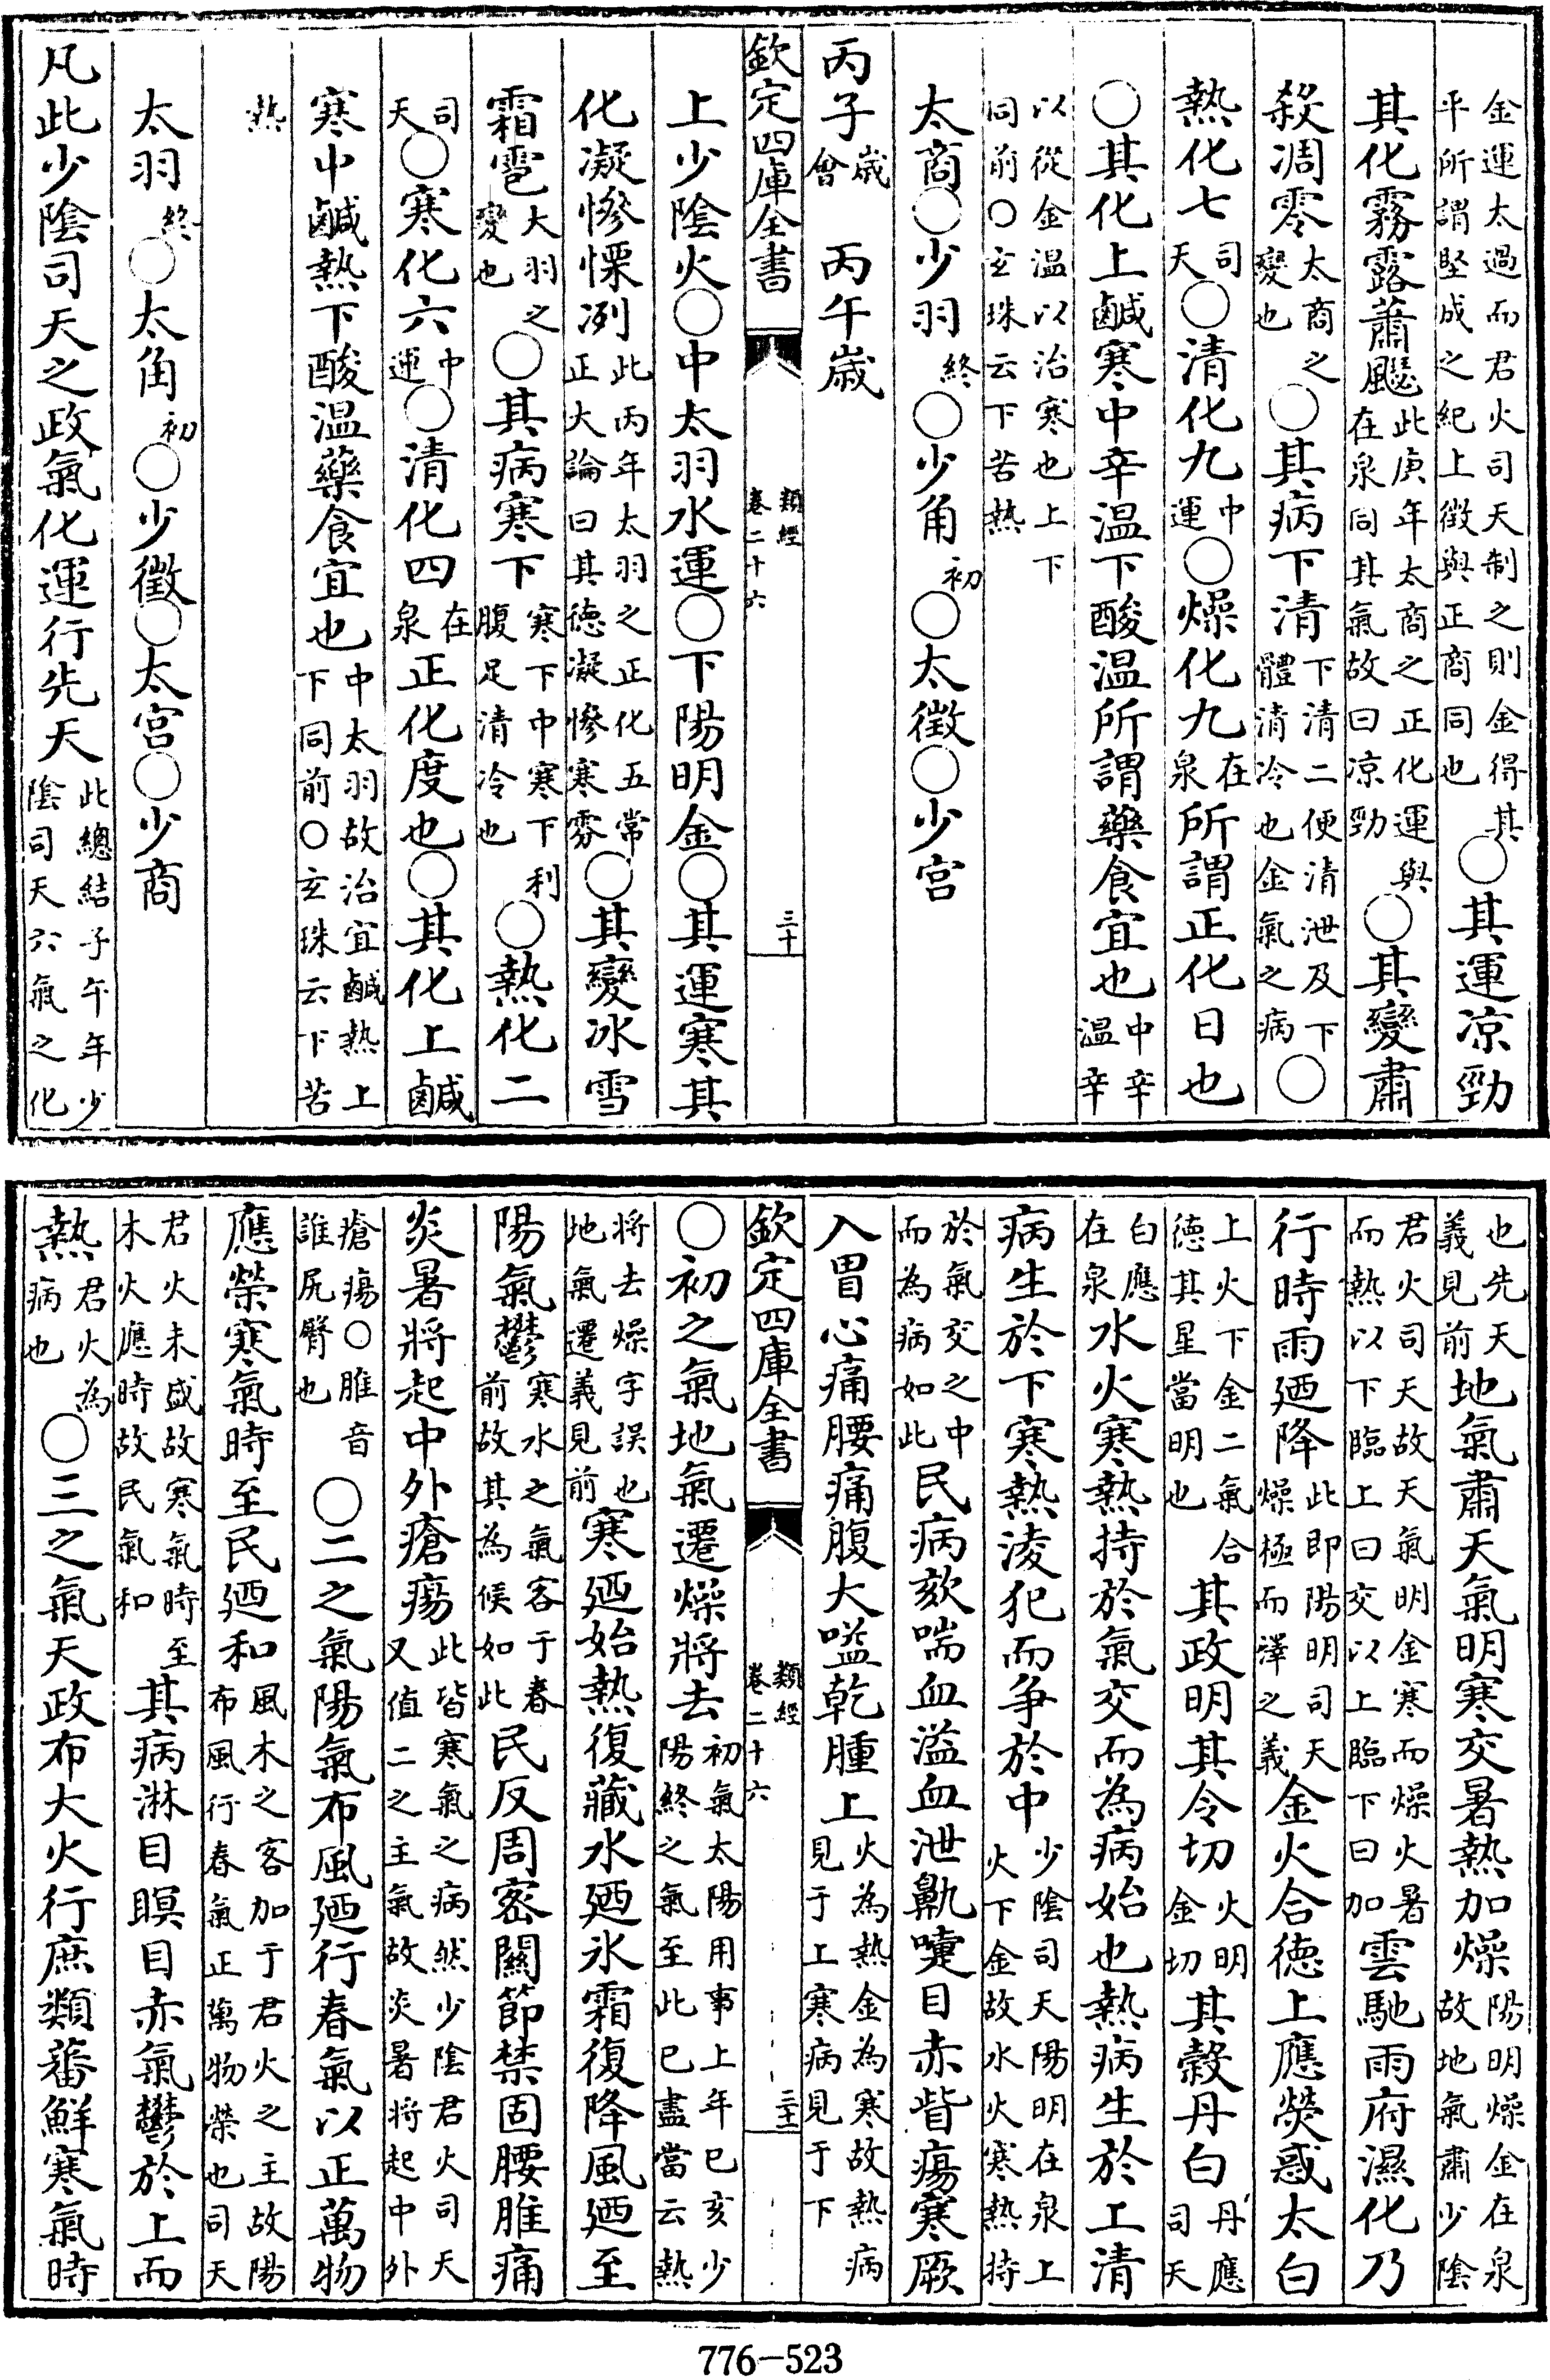 金運太過而君火司天制之則金得其平所謂堅成之紀上徴與正商同也○其運凉勁
其化霧露蕭飋此庚年太商之正化運與在泉同其氣故曰凉勁○其變肅
殺凋零太商之變也○其病下清下清二便清泄及下體清冷也金氣之病○
熱化七司天○清化九中運○燥化九在泉所謂正化日也
○其化上鹹寒中辛温下酸温所謂藥食宜也中辛温辛
以從金温以治寒也上下同前○玄珠云下苦熱
太商○少羽終○少角初○太徴○少宫
丙子歲會　丙午歲
欽定四庫全書　類經卷二十六　三十
上少陰火○中太羽水運○下陽明金○其運寒其
化凝慘慄冽此丙年太羽之正化五常正大論曰其德凝慘寒雰○其變冰雪
霜雹太羽之變也○其病寒下寒下中寒下利腹足清冷也○熱化二
司天○寒化六中運○清化四在泉正化度也○其化上鹹
寒中鹹熱下酸温藥食宜也中太羽故治宜鹹熱上下同前○玄珠云下苦
熱
太羽終○太角初○少徴○太宫○少商
凡此少陰司天之政氣化運行先天此總結子午年少陰司天六氣之化
也先天義見前地氣肅天氣明寒交暑熱加燥陽明燥金在泉故地氣肅少陰
君火司天故天氣明金寒而燥火暑而熱以下臨上曰交以上臨下曰加雲馳雨府濕化乃
行時雨廼降此即陽明司天燥極而澤之義金火合德上應熒惑太白
上火下金二氣合德其星當明也其政明其令切火明金切其榖丹白丹應司天
白應在泉水火寒熱持於氣交而為病始也熱病生於上清
病生於下寒熱淩犯而争於中少陰司天陽明在泉上火下金故水火寒熱持
於氣交之中而為病如此民病欬喘血溢血泄鼽嚏目赤眥瘍寒厥
入胃心痛腰痛腹大嗌乾腫上火為熱金為寒故熱病見于上寒病見于下
欽定四庫全書　類經卷二十六　三十一
○初之氣地氣遷燥將去初氣太陽用事上年已亥少陽終之氣至此已盡當云熱
將去燥字誤也地氣遷義見前寒廼始熱復藏水廼氷霜復降風廼至
陽氣鬱寒水之氣客于春前故其為候如此民反周密關節禁固腰脽痛
炎暑將起中外瘡瘍此皆寒氣之病然少陰君火司天又值二之主氣故炎暑將起中外
瘡瘍○脽音誰尻臀也○二之氣陽氣布風廼行春氣以正萬物
應榮寒氣時至民廼和風木之客加于君火之主故陽布風行春氣正萬物榮也司天
君火未盛故寒氣時至木火應時故民氣和其病淋目瞑目赤氣鬱於上而
熱君火為病也○三之氣天政布大火行庶類蕃鮮寒氣時
776—523